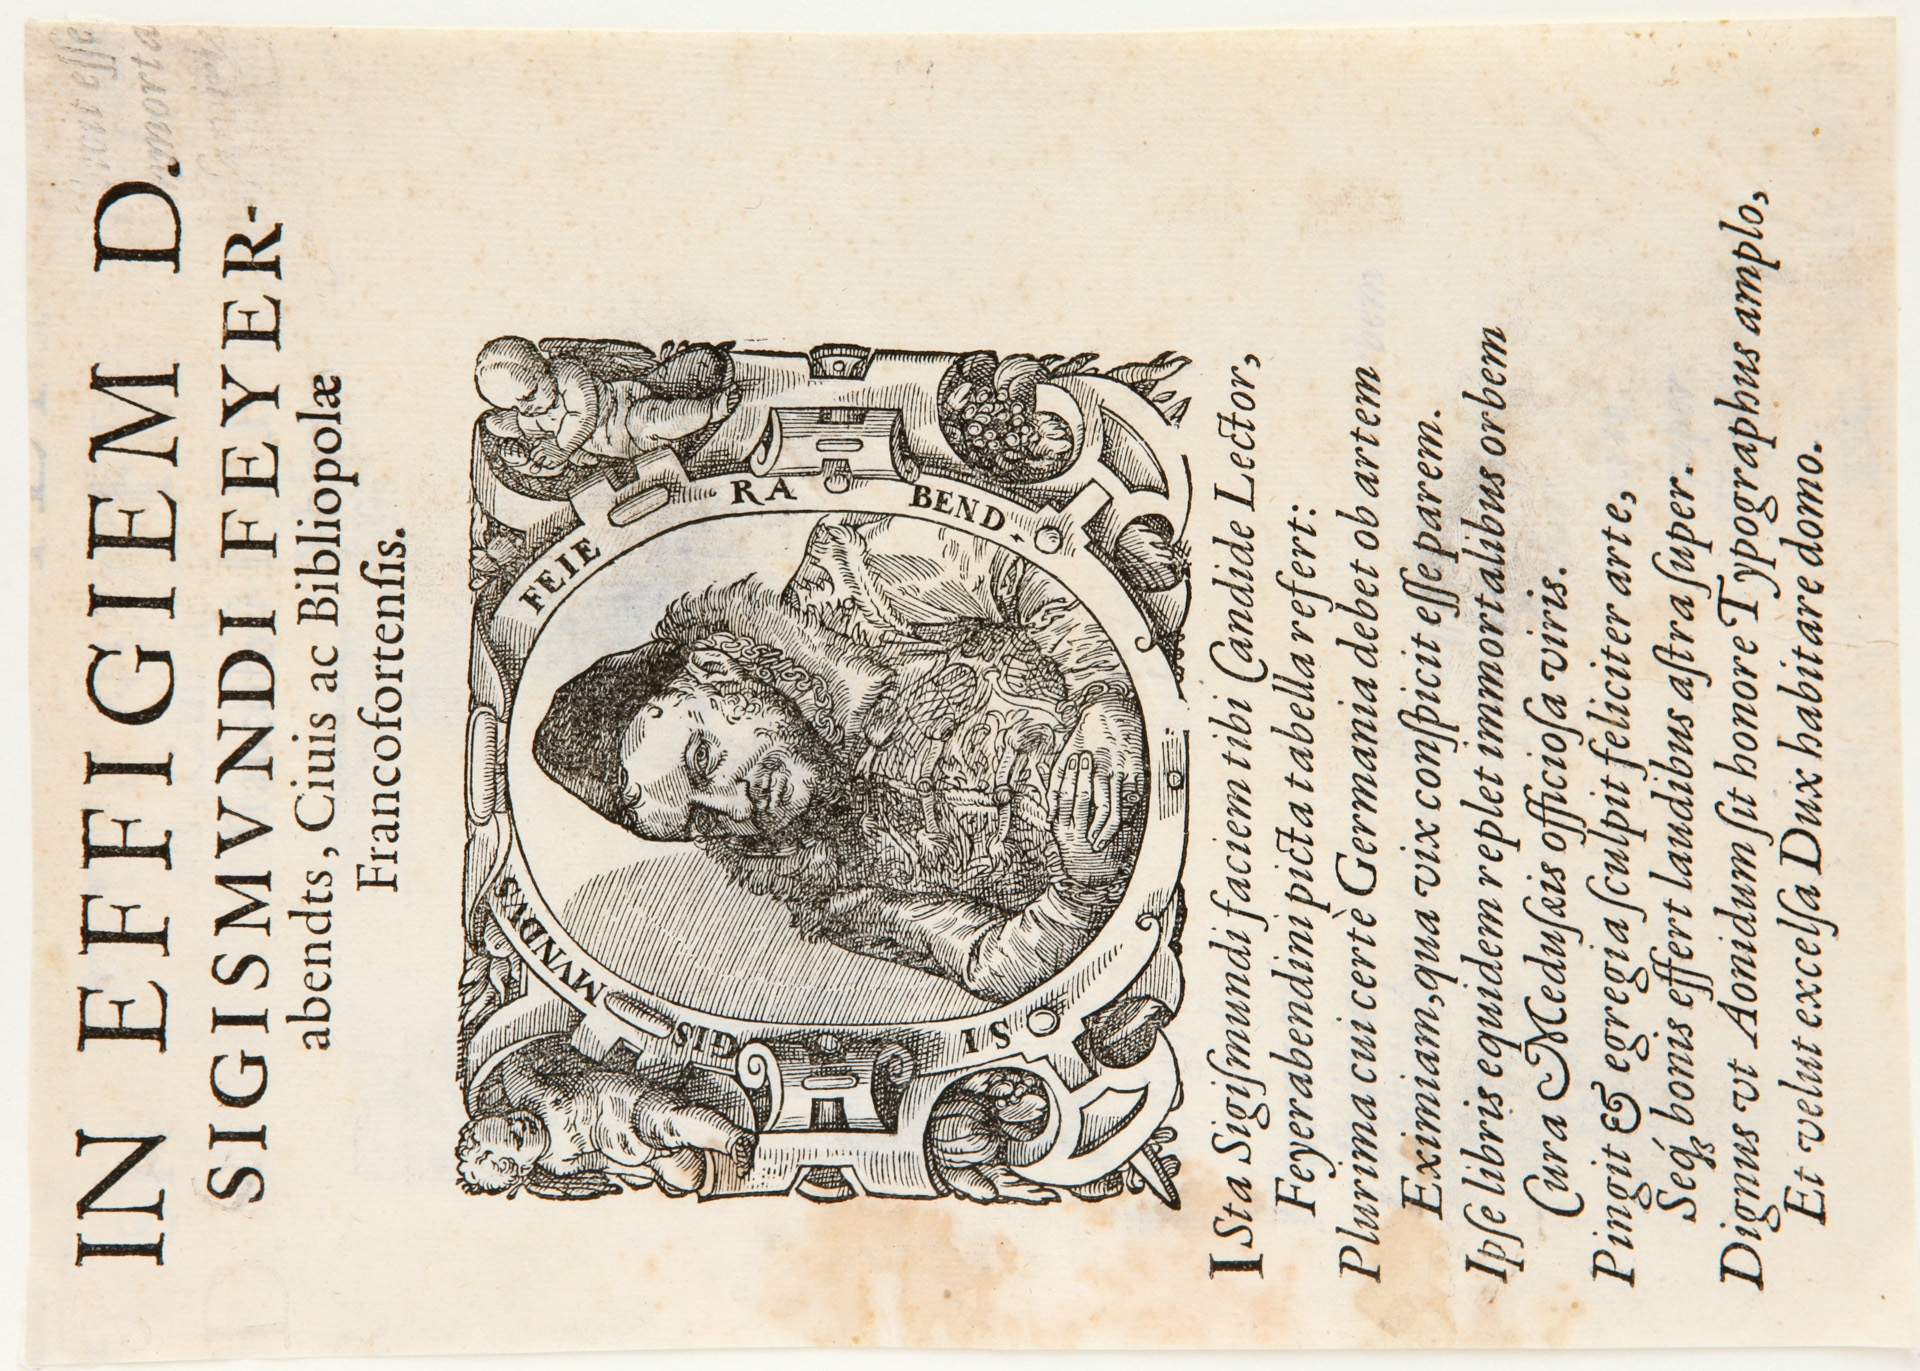 IN EFFIGIEM D.
SIGISMVNDI FEYER-
abendts, Ciuis ac Bibliopolæ
Francofortenſis.
SI GIS MVNDVS FEIE RA BEND.
ISta Sigiſmundi faciem tibi Candide Lector,
Feyerabendini picta tabella refert:
Plurima cui certè Germania debet ob artem
Eximiam, qua vix conſpicit eſſe parem.
Ipſe libris equidem replet immortalibus orbem
Cura Meduſæis officioſa viris.
Pingit & egregia ſculpit feliciter arte,
Seq́; bonis effert laudibus aſtra ſuper.
Dignus vt Aonidum ſit honore Typographus amplo,
Et velut excelſa Dux habitare domo.